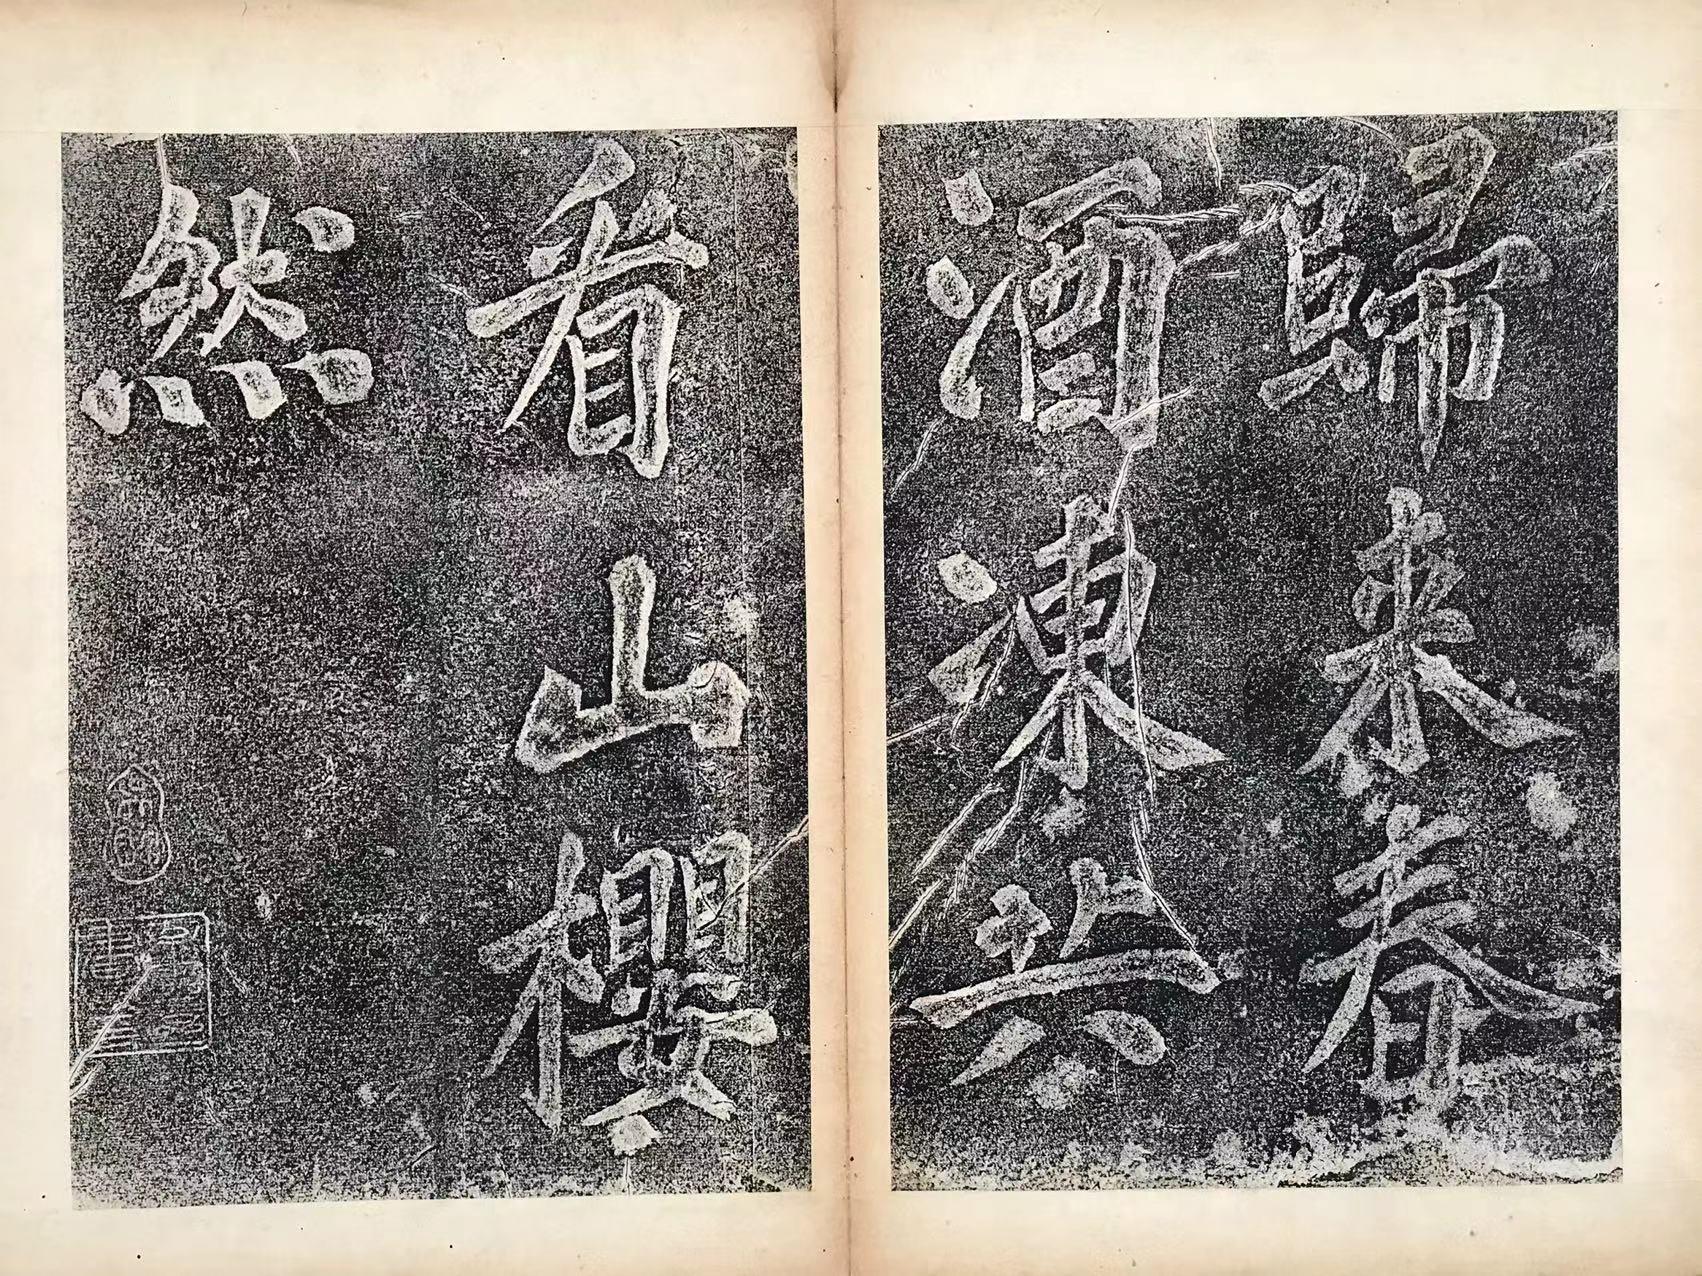 歸来春
酒凍共
看山櫻
然